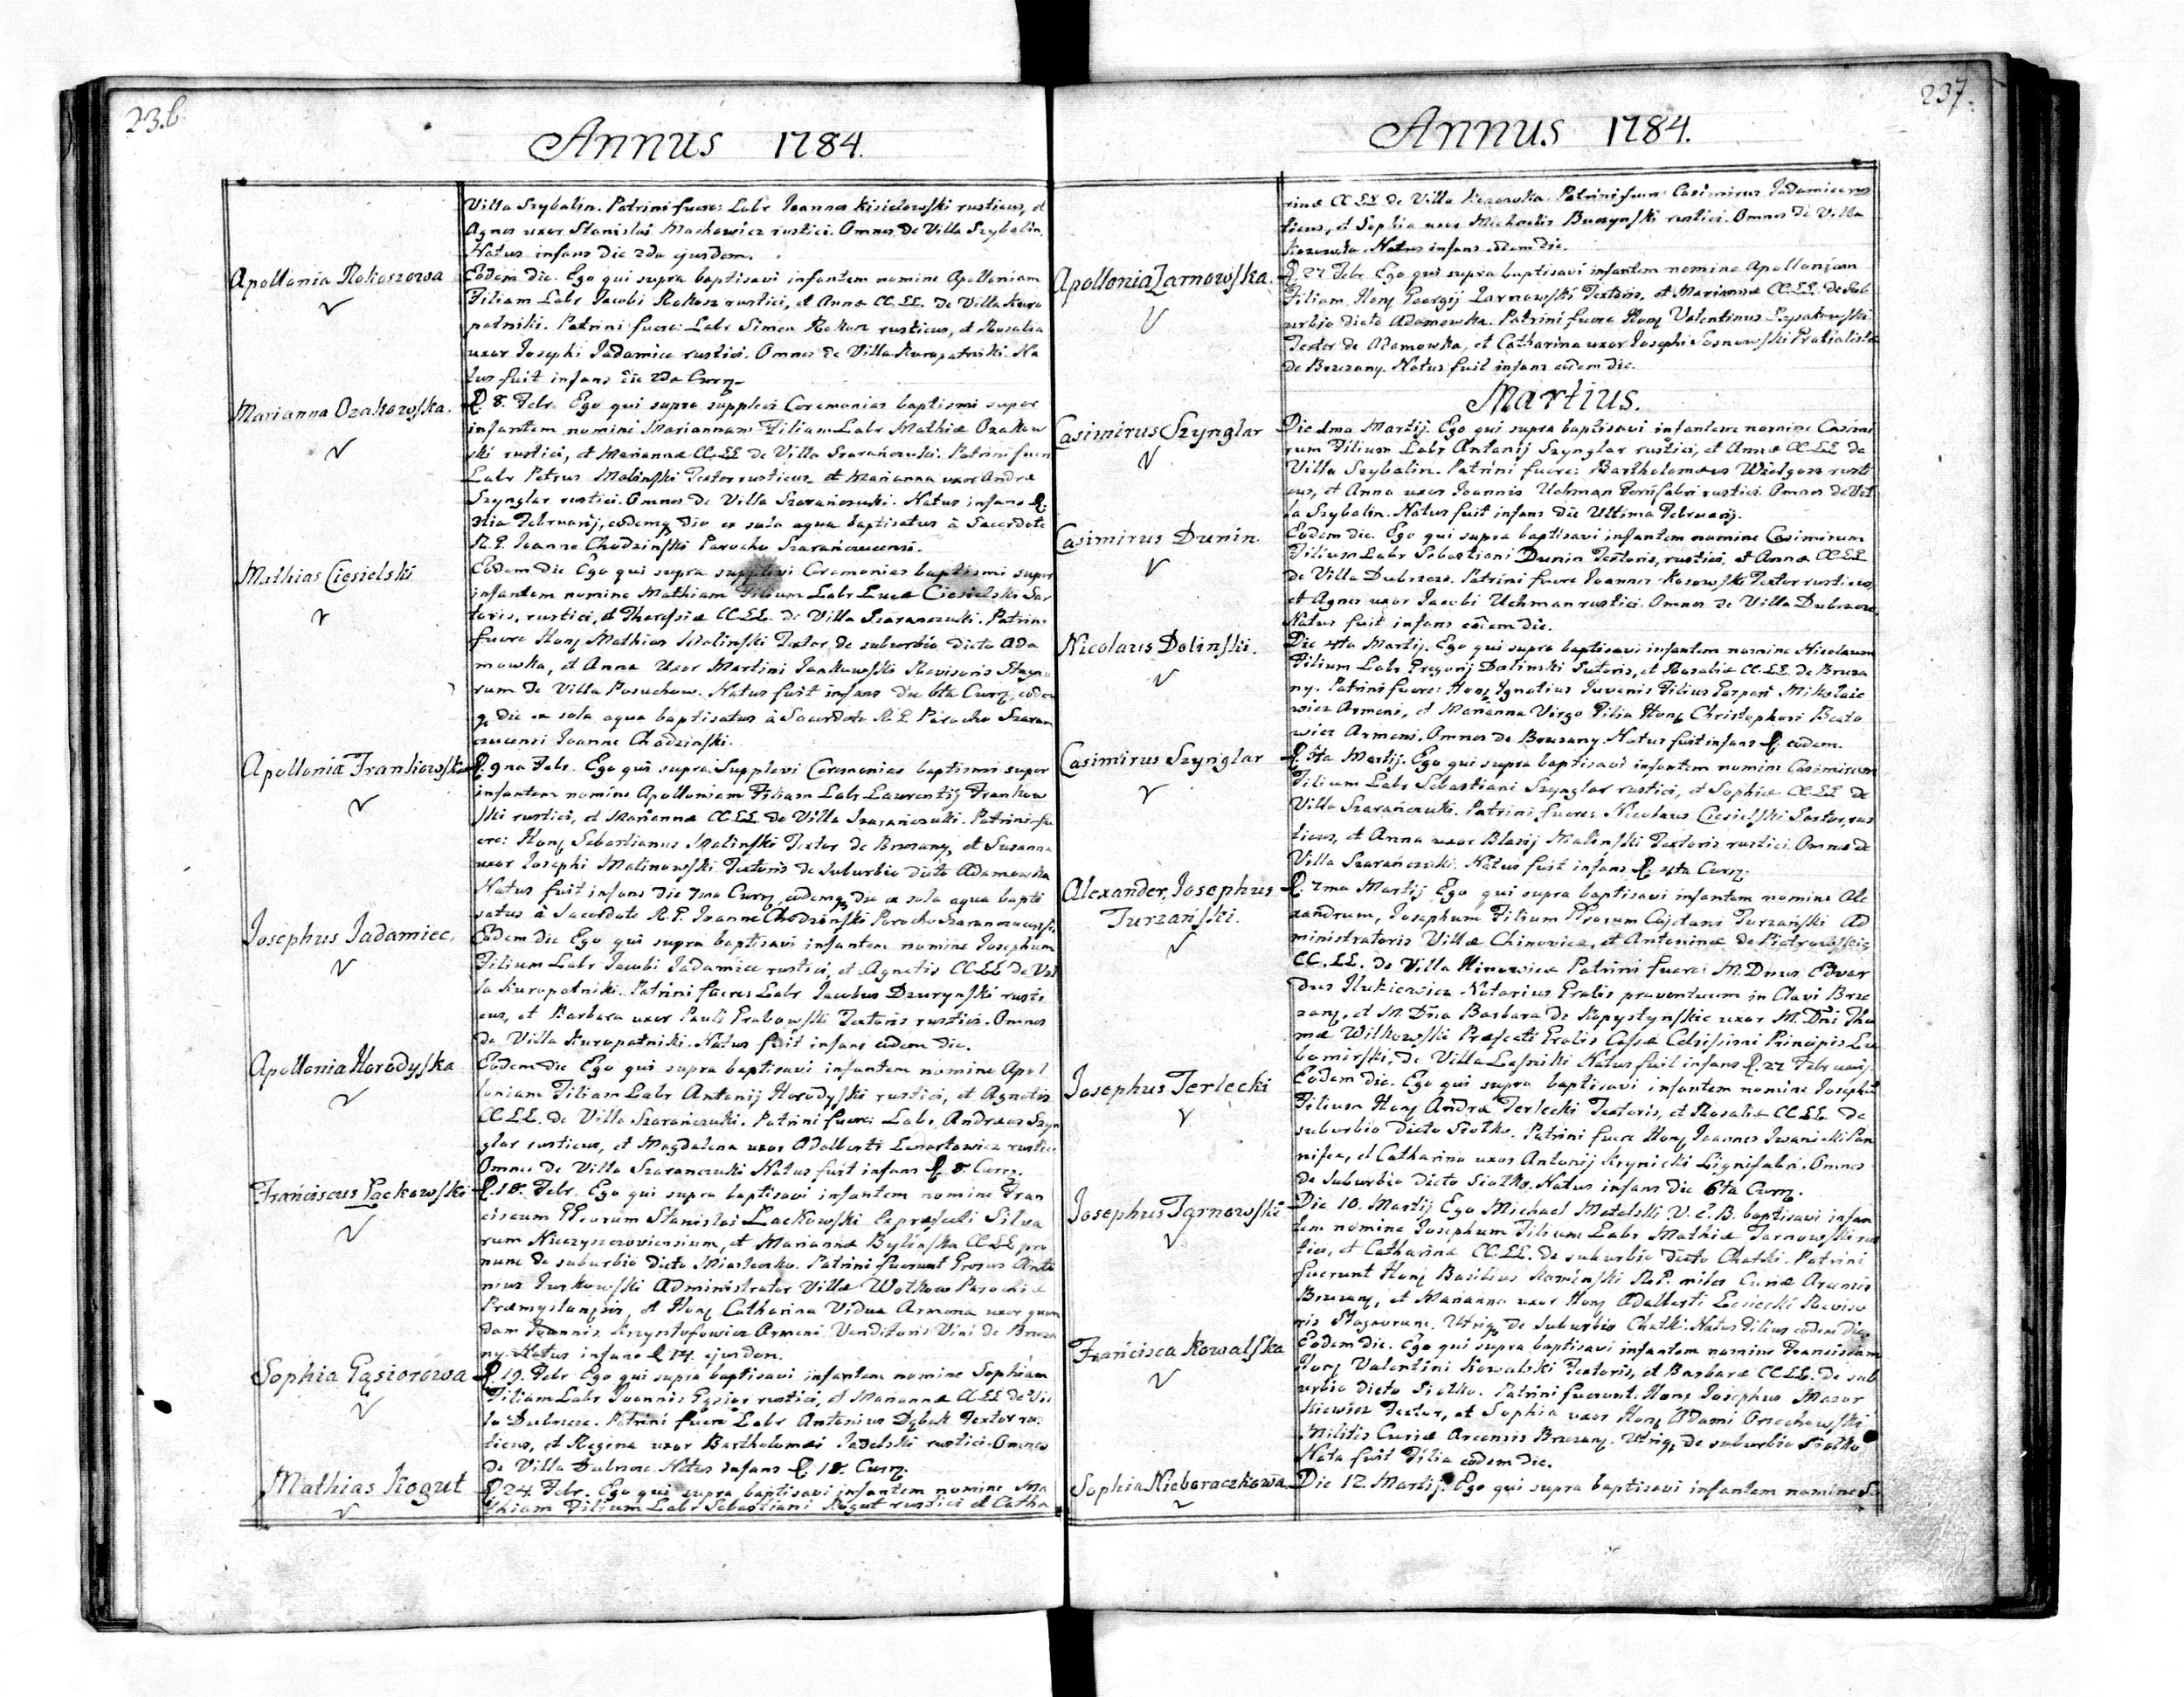 236
Annus 1784.
Villa Szybalin. Patrini fuere: Labr Joannes Kisielowski rusticus, et
Agnes uxor Stanislai Machowicz rustici. Omnes de Villa Szybalin.
Natus infans die 2da ejusdem.
Apollonia Rokoszowa
Eodem die. Ego qui supra baptisavi infantem nomine Apolloniam
Filiam Labr Jacobi Rokosz rustici, et Annæ CC.LL. de Villa Kuro
patniki. Patrini fuere: Labr Simon Rokosz rusticus, et Rosalia
uxor Josephi Jadamiec rustici. Omnes de Villa Kuropatniki. Na
tus fuit infans die 2da Curr.
Marianna Ozakowska.
D. 8. Febr. Ego qui supra supplevi Ceremonias baptismi super
infantem nomine Mariannam Filiam Labr Mathiæ Ozakow
ski rustici, et Mariannæ CC.LL de Villa Szarańczuki. Patrini fuere
Labr Petrus Malinski Textor rusticus, et Marianna uxor Andreæ
Szynglar rustici. Omnes de Villa Szarańczuki. Natus infans D.
3tia Februarij, eodemq die ex sola aqua baptisatus à Sacerdote
R.P. Joanne Chodzinski Parocho Szarańczucensi.
Mathias Ciesielski
Eodem die Ego qui supra supplevi Ceremonias baptismi super
infantem nomine Mathiam Filium Labr Lucæ Ciesielski Sar
toris, rustici, et Theresiæ CC.LL. de Villa Szaranczuki. Patrini
fuere Hon Mathias Malinski Textor de suburbio dicto Ada
mowka, et Anna Uxor Martini Jankowski Revisoris Stagno
rum de Villa Posuchow. Natus fuit infans die 6ta Curr, eodem
q die ex sola aqua baptisatus à Sacerdote R.P. Parocho Szaran
czucensi Joanne Chodzinski.
Apollonia Frankowska
D. 9na Febr. Ego qui supra Supplevi Ceremonias baptismi super
infantem nomine Apolloniam Filiam Labr Laurentij Frankow
ski rustici, et Mariannæ CC.LL de Villa Szarańczuki. Patrini fu
ere: Hon Sebastianus Malinski Textor de Brzezany, et Susanna
uxor Josephi Malinowski Textoris de Suburbio dicto Adamowka
Natus fuit infans die 7ma Curr, eodemq die ex sola aqua bapti
satus à Sacerdote R.P. Joanne Chodzinski Parocho Szaranczucensi
Josephus Jadamiec.
Eodem die Ego qui supra baptisavi infantem nomine Josephum
Filium Labr Jacobi Jadamiec rustici, et Agnetis CC.LL de Vil
la Kuropatniki. Patrini fuere: Labr Jacobus Dzurynski rusti
cus, et Barbara uxor Pauli Grabowski Textoris rustici. Omnes
de Villa Kuropatniki. Natus fuit infans eodem die.
Apollonia Horodyska
Eodem die Ego qui supra baptisavi infantem nomine Apol
loniam Filiam Labr Antonij Horodyski rustici, et Agnetis
CC.LL. de Villa Szarańczuki. Patrini fuere: Labr Andreas Szyn
glar rusticus, et Magdalena uxor Adalberti Lenartowicz rustici
Omnes de Villa Szaranczuki Natus fuit infans D. 8. Curr.
Franciscus Lackowski
D. 18. Febr. Ego qui supra baptisavi infantem nomine Fran
ciscum Stanislai Lackowski Silva
rum et Mariannæ Bylinska CC.LL pro
nunc de suburbio dicto Miasteczko. Patrini fuerunt Grosus Anto
nius Jurkowski Administrator Villæ Wolkow Parochiæ
et Hon Catharina Vidua Armena uxor quon
dam Joannis Krzysztofowicz Armeni Venditoris Vini de Brzeza
ny. Natus infans D 14. ejusdem.
Sophia Gąsiorowa
D. 19. Febr Ego qui supra baptisavi infantem nomine Sophiam
Filiam Labr Joannis Gąsior rustici, et Mariannæ CC.LL de Vil
la Dubszcze. Patrini fuere Labr Antonius Dąbek Textor rus
ticus, et Regina uxor Bartholomæi Jadelski rustici. Omnes
de Villa Dubszcze. Natus infans D. 18. Curr.
Mathias Kogut
D. 24. Febr. Ego qui supra baptisavi infantem nomine Ma
thiam Filium Labr Sebastiani Kogut rustici et Catha
237.
Annus 1784.
rinæ CC.LL de Villa Kozowka. Patrini fuere Casimirus Jadamiec rus
ticus, et Sophia uxor Michaelis Buczynski rustici. Omnes de Villa
Kozowka. Natus infans eodem die.
Apollonia Zarnowska.
D. 27 Febr. Ego qui supra baptisavi infantem nomine Apolloniam
Filiam Hon Georgij Zarnowski Textoris, et Mariannæ CC.LL. de Sub
urbio dicto Adamowka. Patrini fuere Hon Valentinus
Textor de Adamowka, et Catharina uxor Josephi Sosnowski
de Brzezany. Natus fuit infans eodem die.
Martius.
Casimirus Szynglar
Die 1ma Martij. Ego qui supra baptisavi infantem nomine Casimi
rum Filium Labr Antonij Szynglar rustici, et Annæ CC.LL de
Villa Szybalin. Patrini fuere: Bartholomæus Wielgosz rusti
cus, et Anna uxor Joannis Uchman rustici. Omnes de Vil
la Szybalin. Natus fuit infans die Ultima Februarij.
Casimirus Dunin.
Eodem die. Ego qui supra baptisavi infantem nomine Casimirum
Filium Labr Sebastiani Dunin Textoris, rustici, et Annæ CC.LL
de Villa Dubszcze. Patrini fuere Joannes Kosowski Textor rusticus,
et Agnes uxor Jacobi Uchman rustici. Omnes de Villa Dubszcze.
Natus fuit infans eodem die.
Nicolaus Dolinski.
Die 4ta Martij. Ego qui supra baptisavi infantem nomine Nicolaum
Filium Labr Gregorij Dolinski Sutoris, et Rosaliæ CC.LL. de Brzeza
ny. Patrini fuere: Hon Ignatius Juvenis Filius Gaspari Mikolaie
wicz Armeni, et Marianna Virgo Filia Hon Christophori Beato
wicz Armeni. Omnes de Brzezany. Natus fuit infans D. eodem.
Casimirus Szynglar
D. 5ta Martij. Ego qui supra baptisavi infantem nomine Casimirum
Filium Labr Sebastiani Szynglar rustici, et Sophiæ CC.LL de
Villa Szarańczuki. Patrini fuere: Nicolaus Ciesielski Sartor, rus
ticus, et Anna uxor Blasij Malinski Textoris rustici. Omnes de
Villa Szarańczuki. Natus fuit infans D. 4ta Curr.
Alexander, Josephus
Turzański.
D. 7ma Martij Ego qui supra baptisavi infantem nomine Ale
xandrum, Josephum Filium Cajetani Turzański Ad
ministratoris Villæ Chinovicæ, et Antoninæ de Pietrowskie
CC.LL. de Villa Hinowice Patrini fuere: M. Dnus Edvar
dus Ilukiewicz Notarius Gralis proventuum in Clavi Brze
zany, et M. Dña Barbara de Kopystynskie uxor M. Dñi Tho
mæ Witkowski Præfecti Gralis Cassæ Celsissimi Principis Lu
bomirski, de Villa Lesniki Natus fuit infans D. 27 Februarij.
Josephus Terlecki
Eodem die. Ego qui supra baptisavi infantem nomine Josephum
Filium Hon Andreæ Terlecki Textoris, et Rosaliæ CC.LL. de
suburbio dicto Siolko. Patrini fuere Hon Joannes Iwanicki Pan
nifex, et Catharina uxor Antonij Krynicki Lignifabri. Omnes
de Suburbio dicto Siolko. Natus infans die 6ta Curr.
Josephus Tarnowski
Die 10. Martij Ego Michael Matelski V. C. B. baptisavi infan
tem nomine Josephum Filium Labr Mathiæ Tarnowski rus
tici, et Catharinæ CC.LL. de suburbio dicto Chatki. Patrini
fuerunt Hon Basilius Kaminski miles Curiæ Arcensis
Brzezany, et Marianna uxor Hon Adalberti Leniecki Reviso
ris Stagnorum. Utriq de suburbio Chatki. Natus Filius eodem die.
Francisca Kowalska
Eodem die. Ego qui supra baptisavi infantem nomine Franciscam
Hon Valentini Kowalski Textoris, et Barbaræ CC.LL. de sub
urbio dicto Siolko. Patrini fuerunt: Hon Josephus Mazur
kiewicz Textor, et Sophia uxor Hon Adami Orzechowski
Militis Curiæ Arcensis Brzezany. Utriq de suburbio Siolko.
Nata fuit Filia eodem die.
Sophia Nieboraczkowa
Die 12. Martij. Ego qui supra baptisavi infantem nomine So